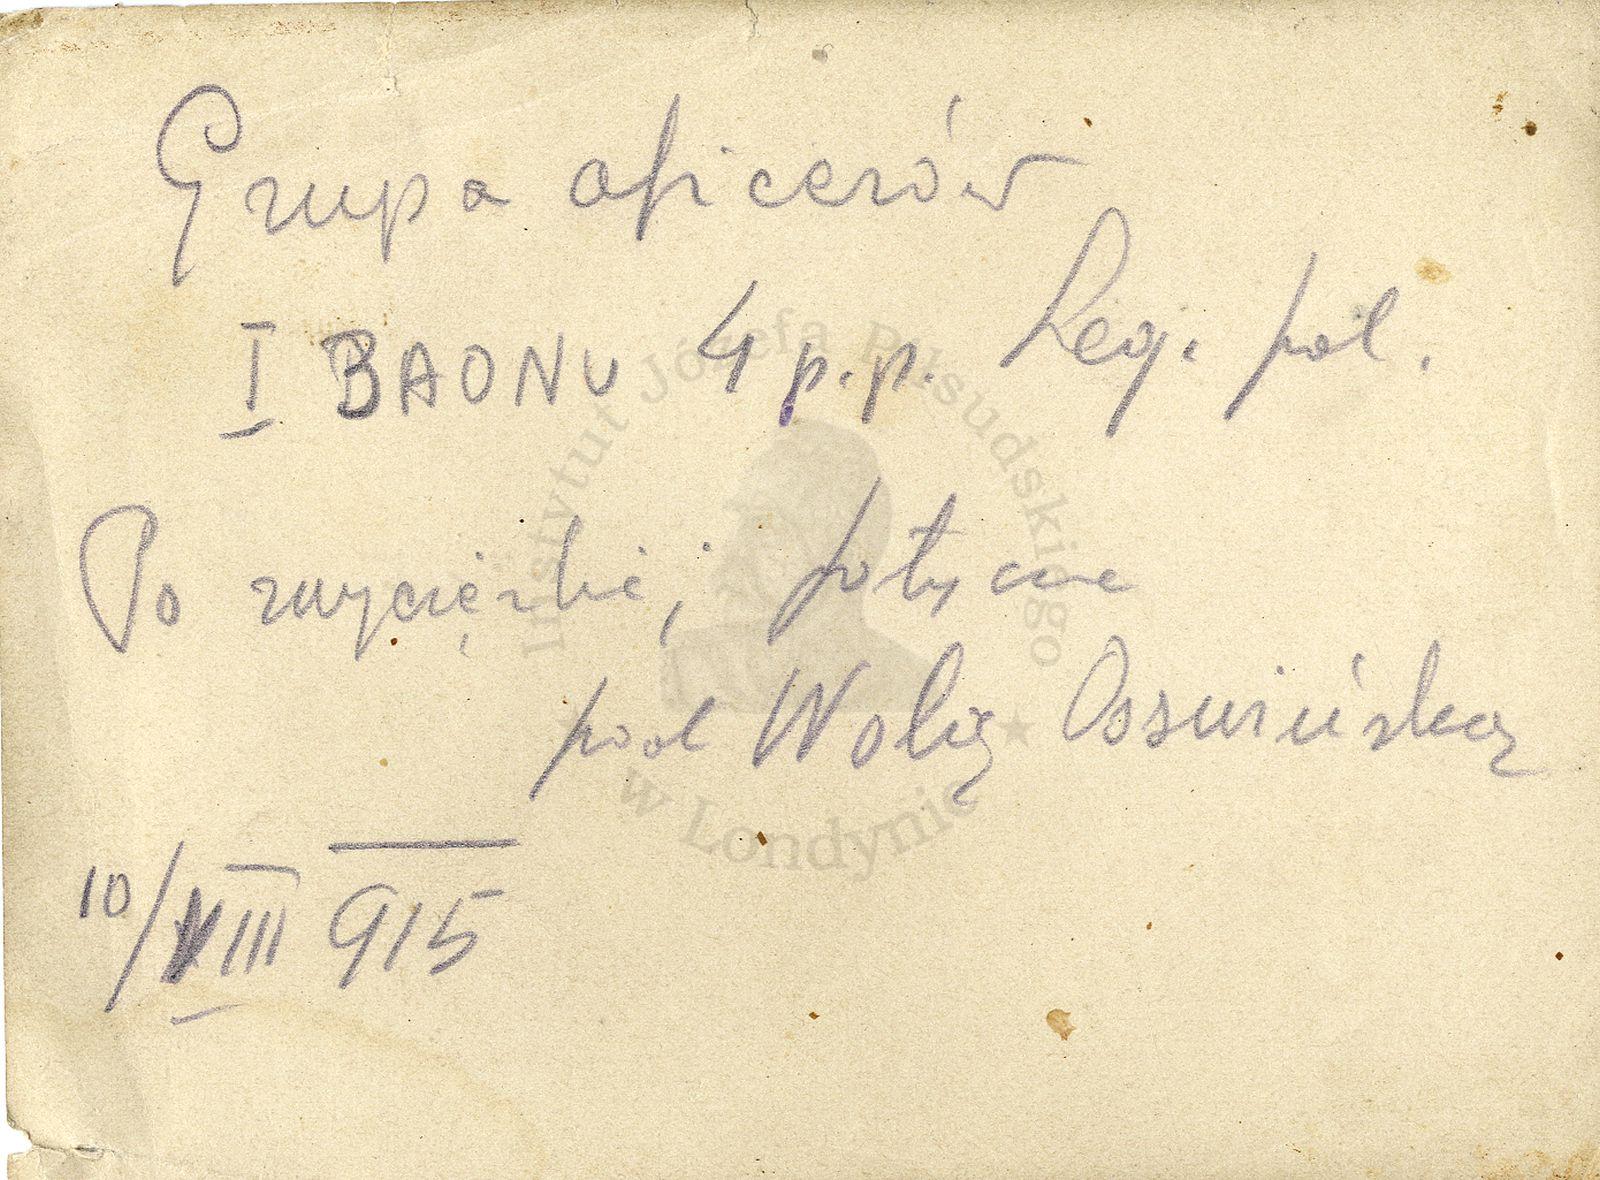 Grupa oficerów
I BAONU 4 p.p. Leg. pol.
Po zwycięskiej potyczce
pod Wolą Osowińską
10/VIII 915
Instytut Józefa Piłsudskiego
w Londynie